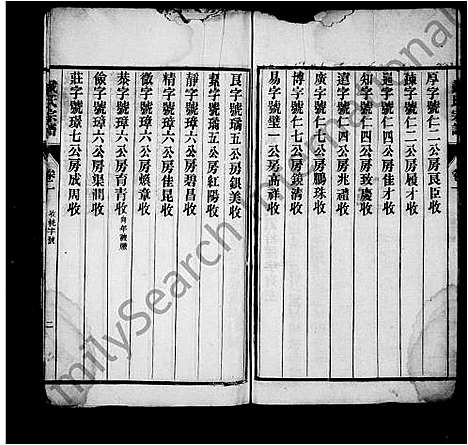 厚字號仁二公房良臣收
疎字號仁二公房履才收
通字號仁四公房佳才收
知字號仁四公房致慶收
遠字號仁四公房兆禮收
廣字號仁七公房鵬珠收
博字號仁七公房鏡清收
易字號璧一公房高祥收
良字號璊五公房鎮美收
絜字號璊五公房紅陽收
靜字號璋六公房碧昌收
精字號璋六公房佳昆收
微字號璋六公房煥章收
恭字號璋六公房育青收
儉字號璋六公房渠潤收
莊字號璟七公房成周收
戴氏宗譜
卷一
收執字號
二
FamilySearch International